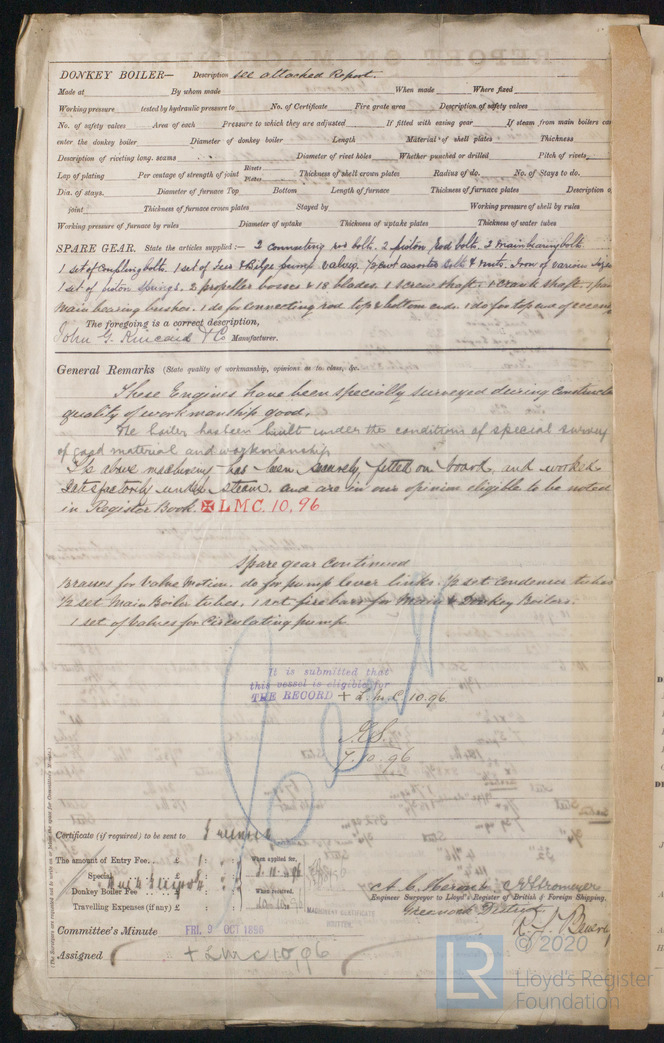 DONKEY BOILER— Description see attached Report.
Made at By whom made When made Where fixed
Working pressure tested by hydraulic pressure to No. of Certificate Fire grate area Description of safety valves
No. of safety valves Area of each Pressure to which they are adjusted If fitted with easing gear If steam from main boilers ca
enter the donkey boiler Diameter of donkey boiler Length Material of shell plates Thickness
Description of riveting long. seams Diameter of rivet holes Whether punched or drilled Pitch of rivets
Lap of plating Per centage of strength of joint Rivets Plates Thickness of shell crown plates Radius of do. No. of Stays to do.
Dia. of stays. Diameter of furnace Top Bottom Length of furnace Thickness of furnace plates Description o
joint Thickness of furnace crown plates Stayed by Working pressure of shell by rules
Working pressure of furnace by rules Diameter of uptake Thickness of uptake plates Thickness of water tubes
SPARE GEAR. State the articles supplied:— 2 connecting rod bolts. 2 piston rod bolts. 2 Main bearing bolts.
1 set of coupling bolts. 1 set of Feed & Bilge pump valves. assorted bolts & nuts. Iron of various sizes
1 set of piston springs. 2 propeller bosses & 18 blades. 1 screw shaft. 1 crank shaft. 1 pair
Main bearing bushes. 1 do for connecting rod top & bottom ends. 1 do for top end of eccen
The foregoing is a correct description,
John G. Kincaid & Co Manufacturer.
General Remarks (State quality of workmanship, opinions as to class, &c.
These Engines have been specially surveyed during construct
quality of workmanship good.
The boiler has been built under the conditions of special survey
of good material and workmanship
The above machinery has been securely fitted on board, and worked
satisfactorily under steam. and are in our opinion eligible to be noted
in Register Book. ✠ L M C. 10, 96
Spare gear continued
Brasses for Valve Motion. do for pump lever links. ½ set condenser tubes
½ set Main Boiler tubes. 1 set fire bars for Main & Donkey Boilers.
1 set of Valves for Circulating pump
It is submitted that
this vessel is eligible for
THE RECORD + L.M.C. 10.96
7.10.96
Certificate (if required) to be sent to Greenock
The amount of Entry Fee... £ : : When applied for,
Special £ : :
Donkey Boiler Fee £ : : When received,
Travelling Expenses (if any) £ : :
MACHINERY CERTIFICATE
WRITTEN.
Engineer Surveyor to Lloyd's Register of British & Foreign Shipping.
Greenock District
Committee's Minute FRI. 9 OCT 1896
Assigned + LMC 10,96
(The Surveyors are requested not to write on or below the space for Committee's Minute.)
LR
© 2020
Lloyd's Register
Foundation